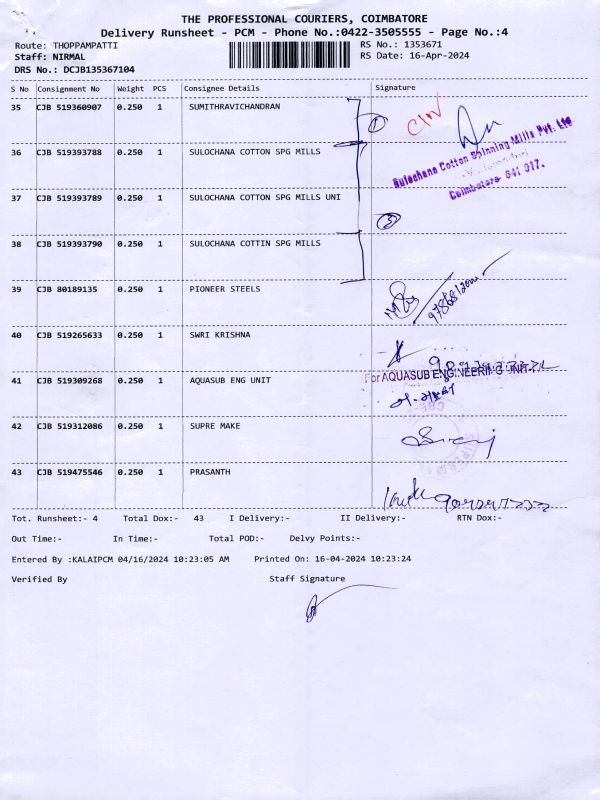 THE PROFESSIONAL COURIERS, COIMBATORE
Delivery Runsheet - PCM - Phone No.:0422-3505555 - Page No.:4
Route: THOPPAMPATTI RS No.: 1353671
Staff: NIRMAL RS Date: 16-Apr-2024
DRS No.: DCJB135367104
S No Consignment No Weight PCS Consignee Details Signature
35 CJB 519360907 0.250 1 SUMITHRAVICHANDRAN
36 CJB 519393788 0.250 1 SULOCHANA COTTON SPG MILLS
Sulochana Cotton Spinning Mills Pvt. Ltd
Coimbatore 641 017.
37 CJB 519393789 0.250 1 SULOCHANA COTTON SPG MILLS UNI
38 CJB 519393790 0.250 1 SULOCHANA COTTIN SPG MILLS
39 CJB 80189135 0.250 1 PIONEER STEELS
40 CJB 519265633 0.250 1 SWRI KRISHNA
For AQUASUB ENGINEERING UNIT
41 CJB 519309268 0.250 1 AQUASUB ENG UNIT
42 CJB 519312086 0.250 1 SUPRE MAKE
43 CJB 519475546 0.250 1 PRASANTH
Tot. Runsheet:- 4 Total Dox:- 43 I Delivery:- II Delivery:- RTN Dox:-
Out Time:- In Time:- Total POD:- Delvy Points:-
Entered By :KALAIPCM 04/16/2024 10:23:05 AM Printed On: 16-04-2024 10:23:24
Verified By Staff Signature